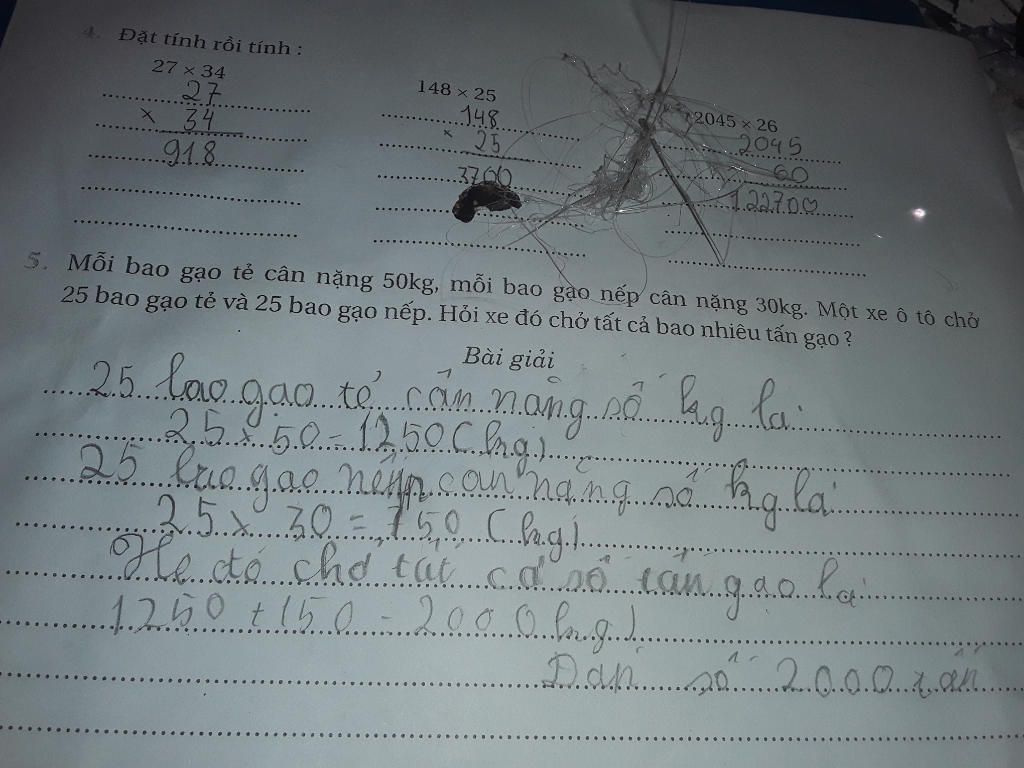 4. Đặt tính rồi tính :
27 × 34
27
× 34
918
148 × 25
148
× 25
3700
2045 × 26
2045
60
122700
5. Mỗi bao gạo tẻ cân nặng 50kg, mỗi bao gạo nếp cân nặng 30kg. Một xe ô tô chở
25 bao gạo tẻ và 25 bao gạo nếp. Hỏi xe đó chở tất cả bao nhiêu tấn gạo ?
Bài giải
25 bao gạo tẻ cân nặng số kg la:
25 × 50 = 1250 (kg)
25 bao gạo nếp cân nặng số kg la:
25 × 30 = 750 (kg)
Xe đó chở tất cả số tấn gạo la:
1250 + 750 = 2000 kg)
Đán số 2000 tấn